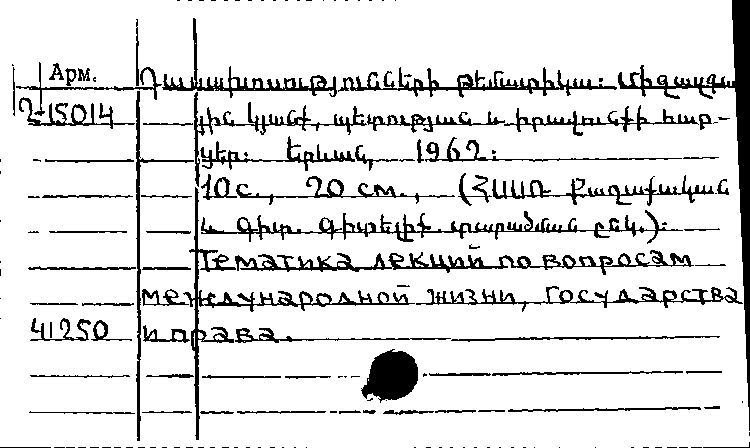 Арм.
Դասախոսությունների թեմատիկա: Միջազգա
2-15014 յին կյանք, պետության և իրավունքի հար-
ցեր: Երևան, 1962:
10 с., 20 см., (ՀՍՍՌ Քաղաքական
և գիտ. գիտելիք. տարածման ընկ.):
Тематика лекций по вопросам
международной жизни, государства
41250 и права.